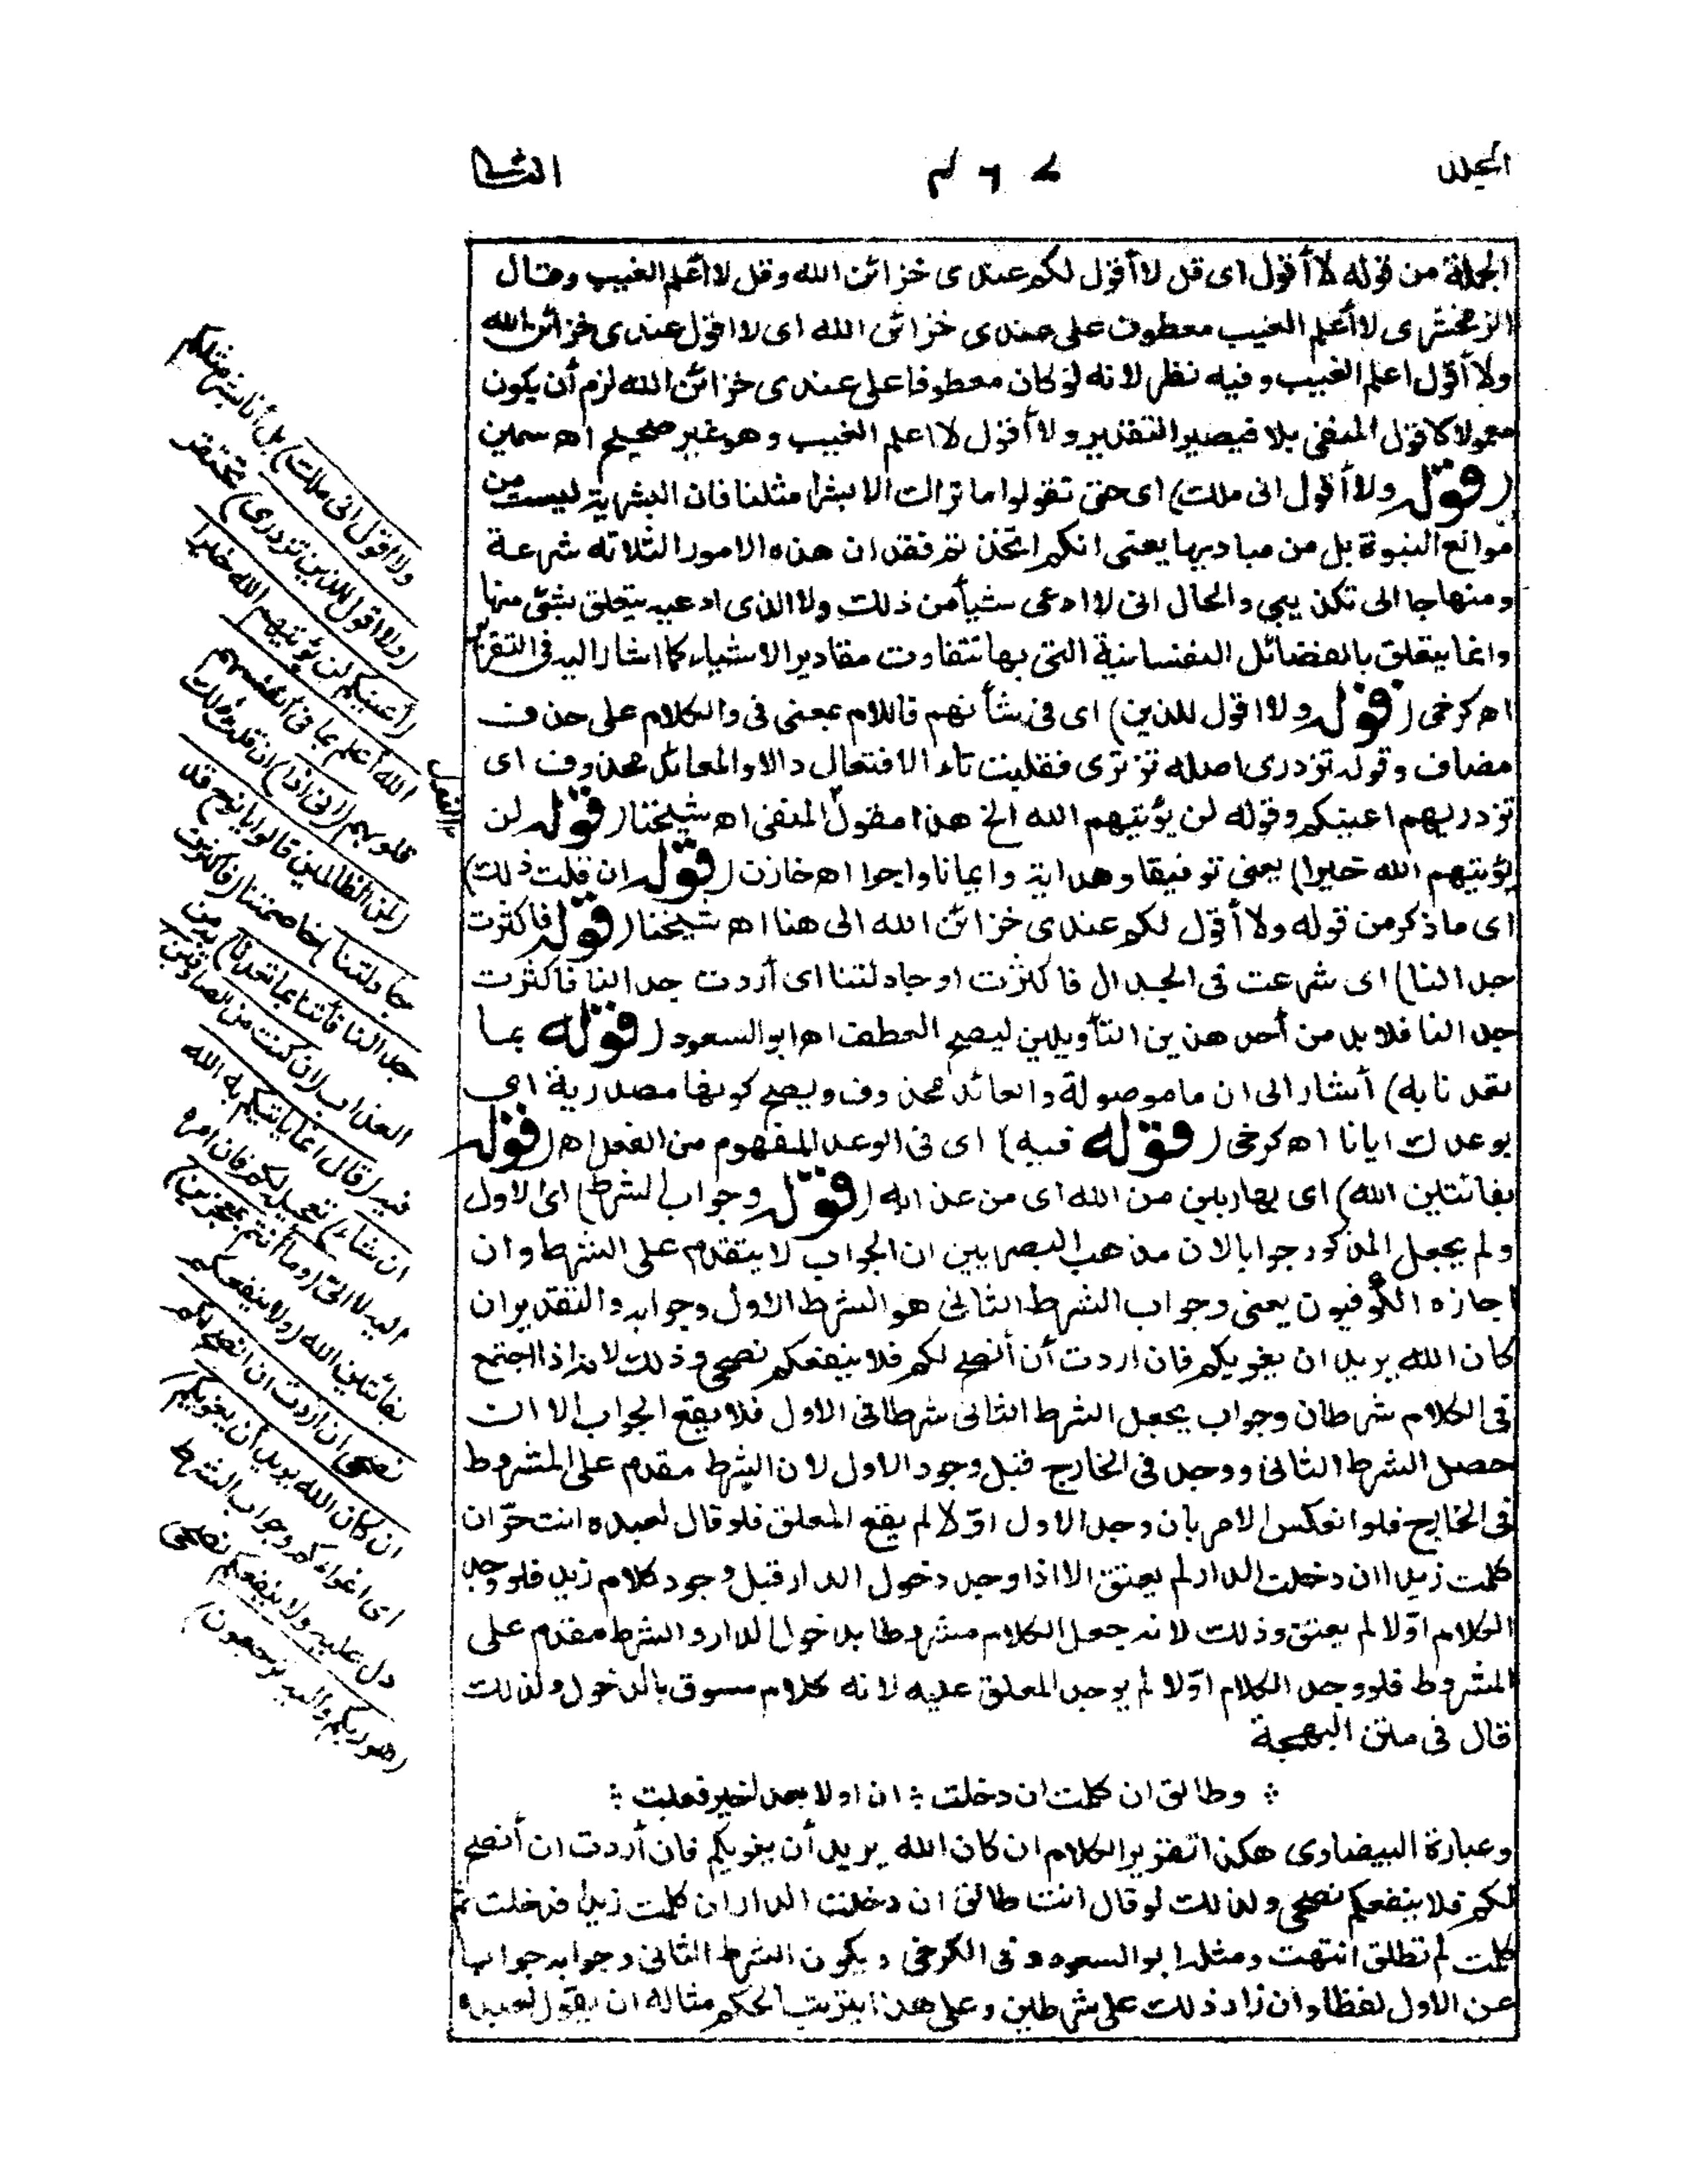 المجلد
٤٦٧
الثانى
الجملة من قوله لا أقول اى قل لا أقول لكم عندى خزائن الله وقل لا أعلم الغيب وقال
الزمخشرى لا أعلم الغيب معطوف على عندى خزائن الله اى لا اقول عندى خزائن الله
ولا أقول اعلم الغيب وفيه نظر لانه لو كان معطوفا على عندى خزائن الله لزم أن يكون
معمولا كاقول المنفى بلا فيصير التقدير ولا أقول لا اعلم الغيب وهو غير صحيح اه سمين
(قوله ولا أقول انى ملك) اى حتى تقولوا ما نراك الا بشرا مثلنا فان البشرية ليست من
موانع النبوة بل من مباديها يعنى انكم اتخذتم فقدان هذه الامور الثلاثة شرعة
ومنهاجا الى تكذيبى والحال انى لا ادعى شيأ من ذلك ولا الذى ادعيه يتعلق بشئ منها
وانما يتعلق بالفضائل النفسانية التى بها تتفاوت مقادير الاشياء كما اشار اليه فى التقرير
اه كرخى (قوله ولا اقول للذين) اى فى شأنهم فاللام بمعنى فى والكلام على حذف
مضاف وقوله تزدرى اصله تزترى فقلبت تاء الافتعال دالا والعائد محذوف اى
تزدريهم اعينكم وقوله لن يؤتيهم الله الخ هذا مقول القول المنفى اه شيخنا (قوله لن
يؤتيهم الله خيرا) يعنى توفيقا وهداية وايمانا واجرا اه خازن (قوله ان قلت ذلك)
اى ما ذكر من قوله ولا أقول لكم عندى خزائن الله الى هنا اه شيخنا (قوله فاكثرت
جدالنا) اى شرعت فى الجدال فاكثرت او جادلتنا اى أردت جدالنا فاكثرت
جدالنا فلا بد من أحد هذين التأويلين ليصح العطف اه ابو السعود (قوله بما
تعدنا به) أشار الى ان ما موصولة والعائد محذوف ويصح كونها مصدرية اى
بوعدك ايانا اه كرخى (قوله فيه) اى فى الوعد المفهوم من الفعل اه (قوله
بفائتين الله) اى بهاربين من الله اى من عذابه (قوله وجواب الشرط) اى الاول
ولم يجعل المذكور جوابا لان مذهب البصريين ان الجواب لا يتقدم على الشرط وان
اجازه الكوفيون يعنى وجواب الشرط الثانى هو الشرط الاول وجوابه والتقدير ان
كان الله يريد ان يغويكم فان اردت أن أنصح لكم فلا ينفعكم نصحى وذلك لانه اذا اجتمع
فى الكلام شرطان وجواب يجعل الشرط الثانى شرطا فى الاول فلا يقع الجواب الا ان
حصل الشرط الثانى ووجد فى الخارج قبل وجود الاول لان الشرط مقدم على المشروط
فى الخارج فلو انعكس الامر بان وجد الاول اوّلا لم يقع المعلق فلو قال لعبده انت حرّ ان
كلمت زيدا ان دخلت الدار لم يعتق الا اذا وجد دخول الدار قبل وجود كلام زيد فلو وجد
الكلام اوّلا لم يعتق وذلك لانه جعل الكلام مشروطا بدخول الدار والشرط مقدم على
المشروط فلو وجد الكلام اوّلا لم يوجد المعلق عليه لانه كلام مسبوق بالدخول ولذلك
قال فى متن البهجة
وطالق ان كلمت ان دخلت ؞ ان اولا بعد اخير فعلت
وعبارة البيضاوى هكذا تقرير الكلام ان كان الله يريد أن يغويكم فان أردت ان أنصح
لكم فلا ينفعكم نصحى ولذلك لو قال انت طالق ان دخلت الدار ان كلمت زيدا فدخلت ثم
كلمت لم تطلق انتهت ومثله ابو السعود وفى الكرخى ويكون الشرط الثانى وجوابه جوابا
عن الاول لفظا وان زاد ذلك على شرطين وعلى هذا يترتب الحكم مثاله ان يقول لعبده
ولا اقول انى ملك) بل أنا بشر مثلكم
(ولا اقول للذين تزدرى) تحتقر
(أعينكم لن يؤتيهم الله خيرا
الله أعلم بما فى أنفسهم)
قلوبهم (انى اذا) ان قلت ذلك
(لمن الظالمين قالوا يا نوح قد
جادلتنا) خاصمتنا (فاكثرت
جدالنا فأتنا بما تعدنا) به من
العذاب (ان كنت من الصادقين)
فيه (قال انما يأتيكم به الله
ان شاء) تعجيله لكم فان امره
اليه لا الىّ (وما أنتم بمعجزين)
بفائتين الله (ولا ينفعكم
نصحى ان اردت ان انصح لكم
ان كان الله يريد أن يغويكم)
اى اغواءكم وجواب الشرط
دل عليه ولا ينفعكم نصحى
(هو ربكم واليه ترجعون)